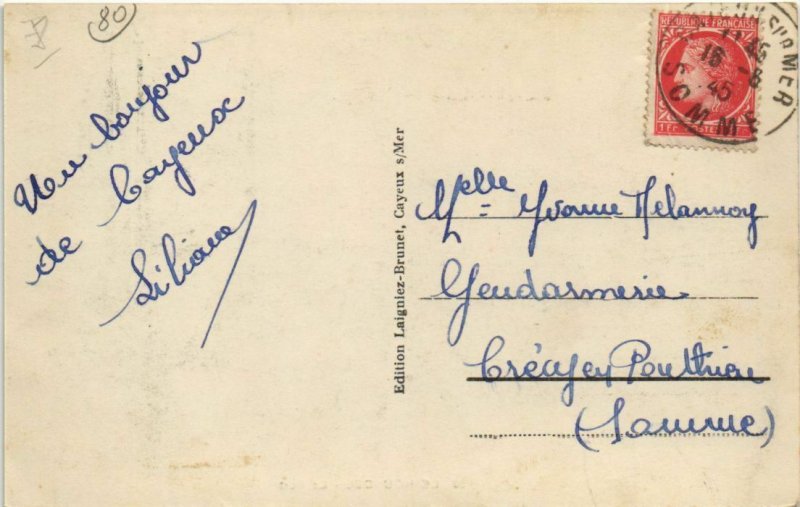 80
Un bonjour
de Cayeux
Liliane
Edition Laigniez-Brunet, Cayeux s/Mer
REPUBLIQUE FRANÇAISE
1F POSTES
S/MER
17 45
16 -8
45
SOMME
Melle Yvonne Delannoy
Gendarmerie
Crécy en Ponthieu
(Somme)